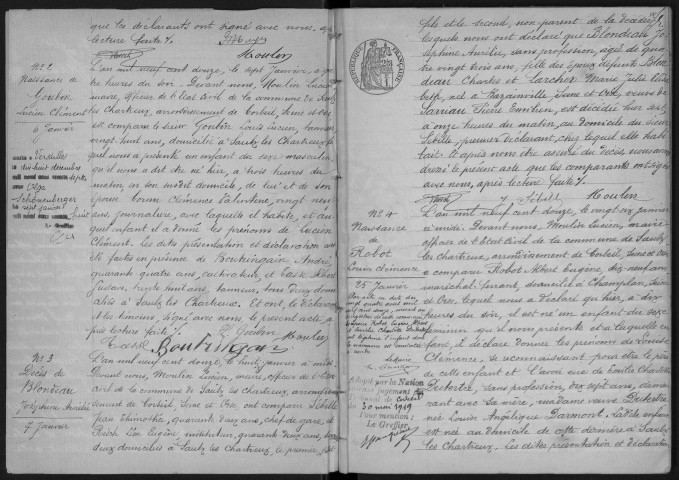 que les déclarants ont signé avec nous, après
lecture faite ./.
Moulin
N° 2
Naissance
de
Goubin
Lucien Clément
6 janvier
L'an mil neuf cent douze, le sept janvier, à
heures du soir. Devant nous, Moulin Lucien
maire, officier de l'Etat Civil de la commune de Saulx
les Chartreux, arrondissement de Corbeil, Seine et Oise
est comparu le sieur Goubin Louis Lucien, tanneur
vingt huit ans, domicilié à Saulx les Chartreux, le
quel nous a présenté un enfant du sexe masculin
qu'il nous a dit être né hier, à trois heures du
matin, en son susdit domicile, de lui et de son
épouse Clémence Valentine, vingt neuf
ans, journalière, avec laquelle il habite, et au
quel enfant il a donné les prénoms de Lucien
Clément. Les dites présentation et déclaration ainsi
faites en présence de Boutringain André,
quarante quatre ans, cultivateur, et
trente huit ans, tanneur, tous deux domici
liés à Saulx les Chartreux. Et ont, le déclarant
et les témoins, signé avec nous le présent acte a
près lecture faite ./.
Versailles
dix huit décembre
Olga
Schönenberger
Goubin
Moulin
N° 3
Décès de
Blondeau
Joséphine Aurélie
7 Janvier
L'an mil neuf cent douze, le huit janvier, à midi
Devant nous, Moulin Lucien, maire, officier de l'Etat
civil de la commune de Saulx les Chartreux, arrondis
sement de Corbeil, Seine et Oise, ont comparu Sébille
Jean Thimothée, quarante deux ans, chef de gare, et
Léon Eugène, instituteur, quarante deux ans, tous
deux domiciliés à Saulx les Chartreux, le premier,
fils et le second, non parent de la décédée,
lesquels nous ont déclaré que Blondeau Jo
séphine Aurélie, sans profession, agée de qua
tre vingt trois ans, fille des époux défunts Blon
deau Charles et Larcher Marie Julie
née à Bazainville, Seine et Oise, veuve de
Sarriau Pierre Emilien, est décédée hier
à onze heures du matin, au domicile du sieur
Sébille, premier déclarant, chez lequel elle habi
tait. Et après nous être assuré du décès, nous avons
dressé le présent acte que les comparants ont signé
avec nous, après lecture faite ./.
Sébille
Moulin
REPUBLIQUE FRANÇAISE
N° 4
Naissance
de
Robot
Louise Clémence
25 Janvier
L'an mil neuf cent douze, le vingt six janvier
à midi. Devant nous, Moulin Lucien, maire
officier de l'Etat Civil de la commune de Saulx
les Chartreux, arrondissement de Corbeil, Seine et Oise
a comparu Robot Albert Eugène, dix neuf ans
maréchal ferrant, domicilié à Champlan, Seine
et Oise, lequel nous a déclaré qu'hier, à dix
heures du soir, il est né un enfant du sexe
féminin qu'il nous présente et à laquelle
il déclare donner les prénoms de Louise
Clémence, se reconnaissant pour être le père
de cette enfant et l'avoir eue de Emilie Charlotte
Dutertre, sans profession, dix sept ans, demeu
rant avec sa mère, madame veuve Dutertre
née Louise Angélique Darmont. Ladite enfant
est née au domicile de cette dernière à Saulx
les Chartreux. Les dites présentation et déclaration
Le Maire
Adopté par la Nation
30 mai 1919
Pour mention :
Le Greffier